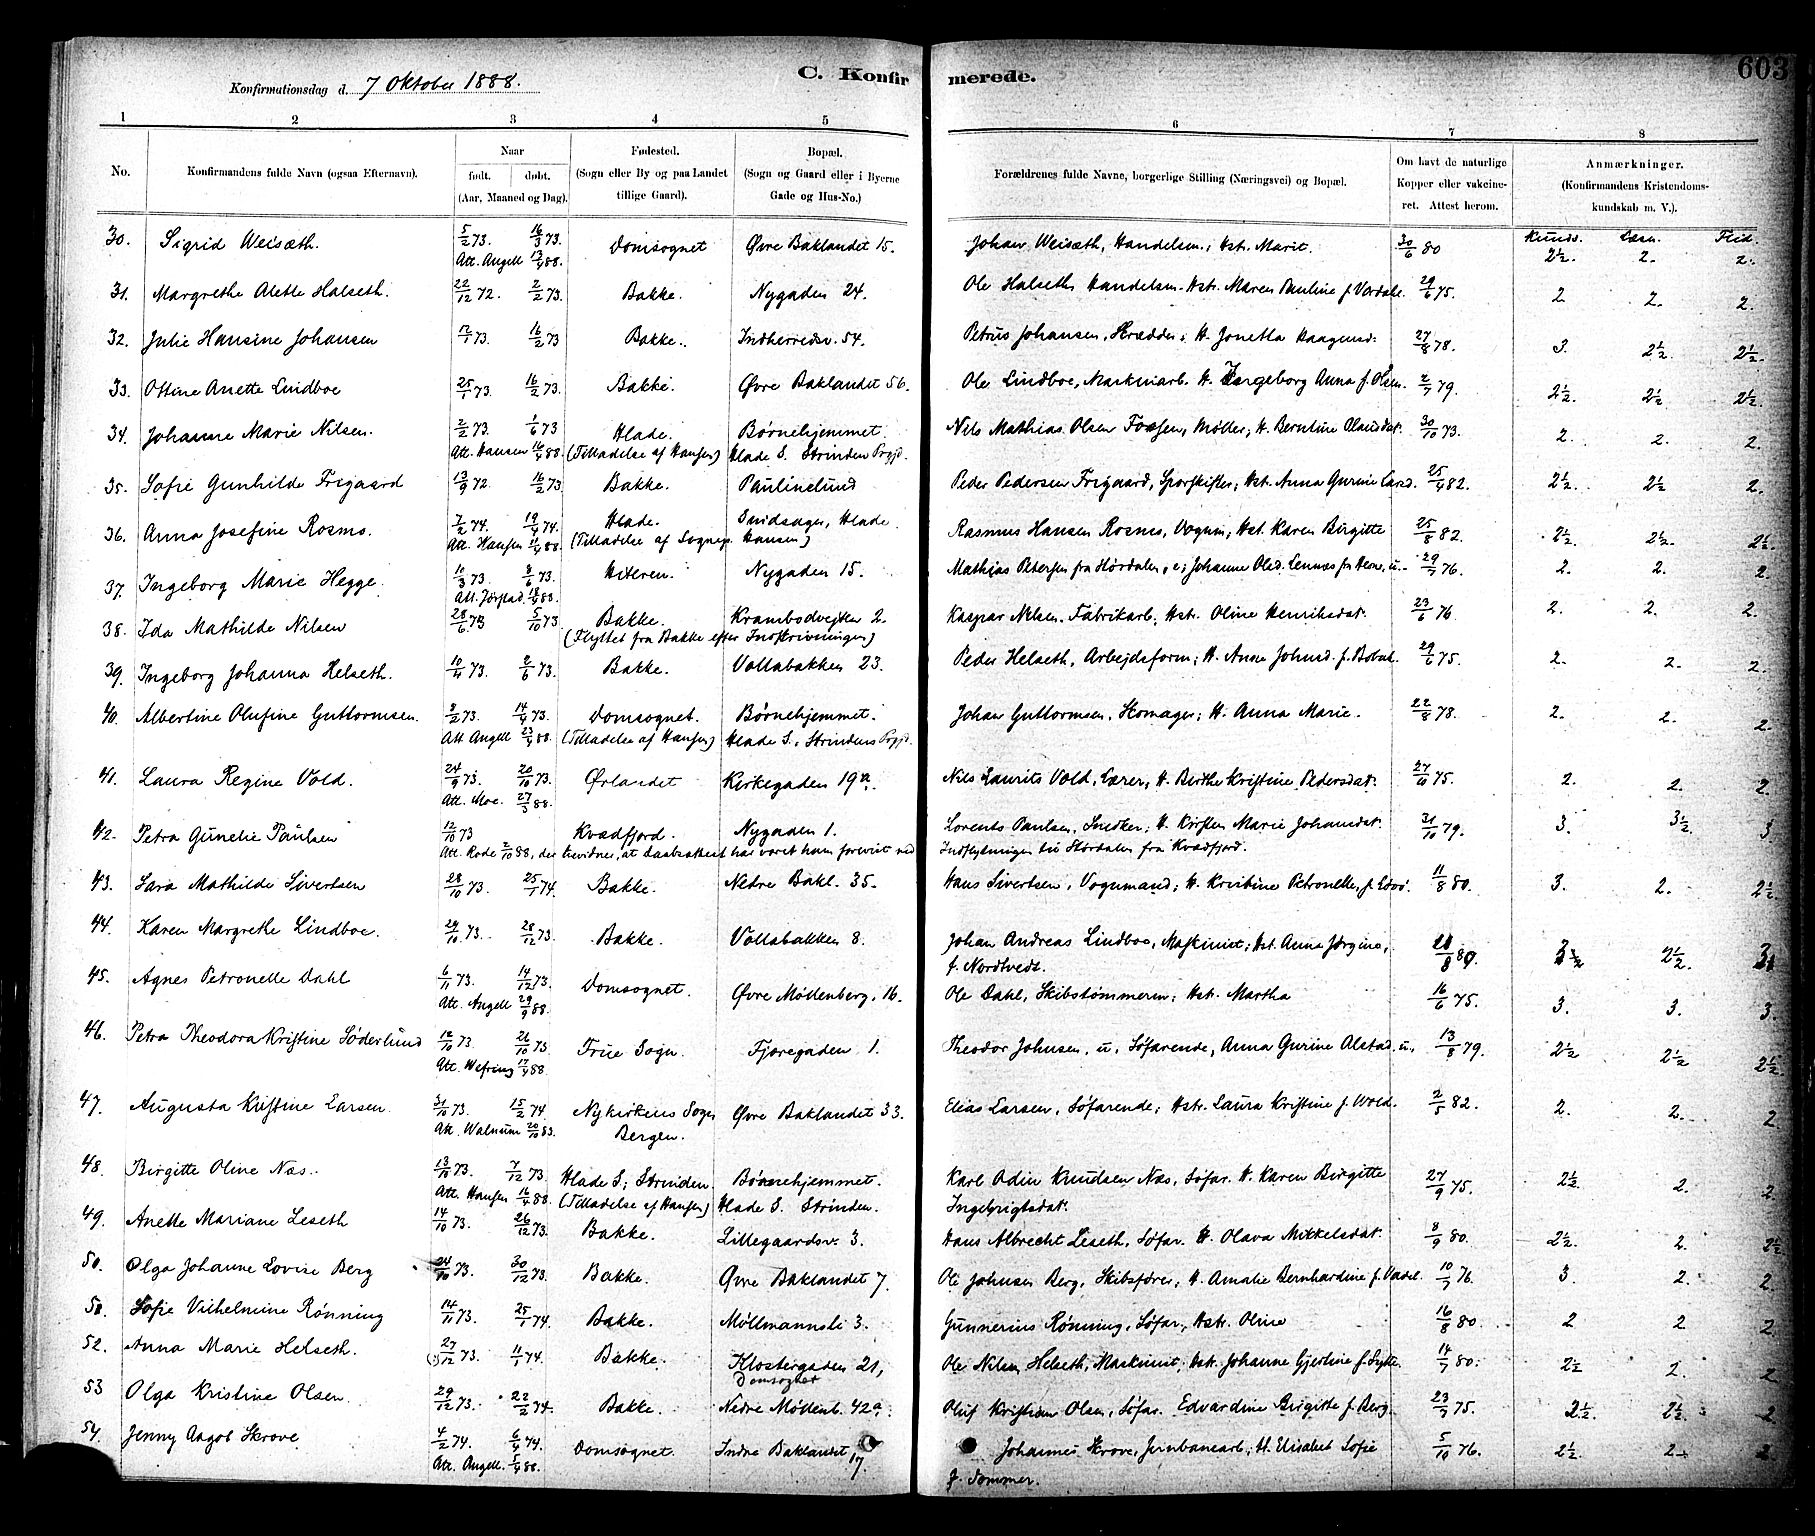 C. Konfirmerede.
603
Konfirmationsdag d. 7 Oktober 1888.
1 2 3 4 5 6 7 8
No.
Konfirmandens fulde Navn (ogsaa Efternavn).
Naar
født. døbt.
(Aar, Maaned og Dag).
Fødested.
(Sogn eller By og paa Landet
tillige Gaard).
Bopæl.
(Sogn og Gaard eller i Byerne
Gade og Hus-No.)
Forældrenes fulde Navne, borgerlige Stilling (Næringsvei) og Bopæl.
Om havt de naturlige
Kopper eller vakcine-
ret. Attest herom.
Anmærkninger.
(Konfirmandens Kristendoms-
kundskab m. V.).
Kundsk. Læsn. Flid.
30. Sigrid Weisæth. 5/2 73. 16/3 73. Domsognet Øvre Baklandet 15. Johan Weisæth, Handelsm.; Hst. Marit. 30/6 80 2½. 2. 2.
Att. Angell 13/4 88.
31. Margrethe Alette Halseth. 22/12 72. 2/2 73. Bakke. Nygaden 24. Ole Halseth Handelsm. Hst. Maren Pauline f. Verdahl. 29/6 75. 2 2. 2.
32. Julie Hansine Johansen 12/1 73. 16/2 73 Bakke. Indherredsv. 54. Petrus Johansen, Skrædder; H. Jonetta Haagensd. 27/8 78. 3. 2½. 2½.
33. Ottine Anette Lindboe 25/1 73. 16/2 73. Bakke. Øvre Baklandet 56. Ole Lindboe, Maskinarb. H. Ingeborg Anna f. Olsen. 2/7 79. 2½. 2½ 2½.
34. Johanne Marie Nilsen. 2/2 73. 1/6 73 Hlade. Børnehjemmet Nils Mathias Olsen Fossen, Møller, H. Berntine Olausdat. 30/10 73. 2. 2. 2.
Att. Hansen 16/4 88. (Tilladelse af Hansen) Hlade S. Strinden Prgjd.
35. Sofie Gunhilde Frigaard 13/9 72 16/2 73 Bakke. Paulinelund Peder Pedersen Frigaard, Sporskifter; Hst. Anna Gurine Larsd. 25/4 82. 2½. 2½ 2.
36. Anna Josefine Rosnes. 7/2 74. 19/4 74. Hlade. Smidsager, Hlade. Rasmus Hansen Rosnes, Vognm; Hst. Karen Birgitte 25/8 82. 2½. 2½. 2½.
Att. Hansen 11/4 88. (Tilladelse af Sognep. Hansen)
37. Ingeborg Marie Hegge. 10/3 73. 8/6 73. Hiteren. Nygaden 15. Mathias Petersen fra Størdalen, e; Johanne Olsd. Lernæs fra Hevne, u. 29/7 76. 2. 2. 2.
Att. Jørstad 18/4 88.
38. Ida Mathilde Nilsen 28/6 73 5/10 73. Bakke. Krambodvejten 2. Kaspar Nilsen. Fabrikarb. Hst. Oline Henriksdat. 23/6 76 2. 2. 2.
(Flyttet fra Bakke efter Indskrivningen)
39. Ingeborg Johanna Helseth. 10/4 73. 2/6 73. Bakke. Vollabakken 23. Peder Helseth, Arbejdsform; H. Anne Johnsd. 29/6 75. 2. 2. 2.
40. Albertine Olufine Guttormsen. 8/2 73. 14/4 73. Domsognet. Børnehjemmet. Johan Guttormsen, Skomager; H. Anna Marie. 22/8 78. 2. 2. 2.
Att Angell 23/4 88. (Tilladelse af Hansen) Hlade S., Strindens Prgjd.
41. Laura Regine Vold. 24/9 73. 20/10 73. Ørlandet Kirkegaden 19a. Nils Laurits Vold, Lærer, H. Berthe Kristine Pedersdat. 27/10 75. 2. 2. 2.
Att. Moe. 27/3 88.
42. Petra Gunelie Paulsen 12/10 73 Kvædfjord. Nygaden 1. Lorents Paulsen, Snedker; H. Kristen Marie Johansdat. 31/10 79. 3. 3½ 3.
Att. Rode 2/10 88, der bevidner, at daabsattest har været ham forevist ved Indflytningen til Størdalen fra Kvædfjord.
43. Sara Mathilde Sivertsen 28/10 73. 25/1 74. Bakke. Nedre Bakl. 35. Hans Sivertsen, Vognmand; H. Kristine Petronelle, 11/8 80. 3. 2. 2½
44. Karen Margrethe Lindboe. 29/10 73. 28/12 73. Bakke. Vollabakken 8. Johan Andreas Lindboe, Maskinist; Hst. Anna Jørgine, 3½ 2½. 3.
f. Nordtvedt.
45. Agnes Petronelle Dahl 6/11 73. 14/12 73. Domsognet. Øvre Møllenberg. 16. Ole Dahl, Skibstømmerm; Hstr. Martha 16/6 75. 3. 3. 3.
Att. Angell 29/9 88.
46. Petra Theodora Kristine Söderlund 12/10 73. 26/10 73. Frue Sogn. Fjæregaden 1. Theodor Johnsen, u, Søfarende, Anna Gurine Alstad, u. 13/8 79. 2½ 2½ 2½.
Att. Wefring 17/4 88.
47. Augusta Kristine Larsen. 31/10 73. 15/2 74. Nykirkens Sogn Øvre Baklandet 33. Elias Larsen, Søfarende; Hstr. Laura Kristine f. Wold. 2/5 82. 2. 2. 2.
Att. Walnum 20/10 83. Bergen.
48. Birgitte Oline Næs. 13/10 73. 7/12 73 Hlade S; Strinden. Børnehjemmet. Karl Odin Knudsen Næs, Søfar. H. Karen Birgitte 27/9 75. 2½ 2. 2.
Att. Hansen 16/4 88. (Tilladelse af Hansen) Hlade S. Strinden. Ingebrigtsdat.
49. Anette Mariane Leseth 14/10 73. 26/12 73. Bakke. Lillegaardsv. 3. Hans Albrecht Leseth, Søfar. H. Olava Mikkelsdat. 8/9 80. 2½. 2. 2½
50. Olga Johanne Lovise Berg 24/10 73. 30/12 73. Bakke. Øvre Baklandet 7. Ole Johnsen Berg, Skibsfører, H. Amalie Bernhardine 10/7 76. 3 2. 2.
51. Sofie Vilhelmine Rønning 14/11 73. 25/1 74. Bakke. Møllmannsli 3. Gunnerius Rønning, Søfar., Hstr. Oline 16/8 80. 2 2 2.
52. Anna Marie Helseth. 27/12 73. 11/1 74. Bakke. Klostergaden 21, Ole Nilsen Helseth, Maskinist; Hstr. Johanne Gjertine 14/7 80. 2½ 2. 2
Domsognet
53 Olga Kristine Olsen. 29/12 73. 22/2 74. Bakke. Nedre Møllenb. 42a. Oluf Kristian Olsen, Søfar. Edvardine Birgitte f. Berg. 23/7 75. 2½. 2½. 2
54. Jenny Aagot Skrove. 4/2 74. 6/4 74. Domsognet. Indre Baklandet 17. Johannes Skrove, Jernbanearb; H. Elisabet Sofie 5/10 76. 2½ 2. 2.
Att. Angell. 5/4 88. f. Sommer.